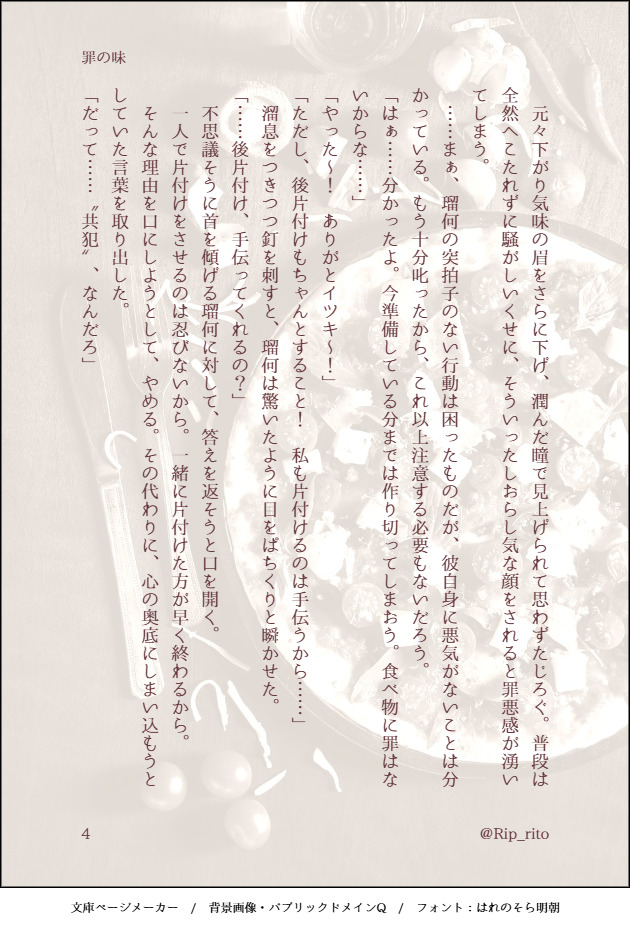 罪の味
　元々下がり気味の眉をさらに下げ、潤んだ瞳で見上げられて思わずたじろぐ。普段は
全然へこたれずに騒がしいくせに、そういったしおらし気な顔をされると罪悪感が湧い
てしまう。
　……まぁ、瑠何の突拍子のない行動は困ったものだが、彼自身に悪気がないことは分
かっている。もう十分叱ったから、これ以上注意する必要もないだろう。
「はぁ……分かったよ。今準備している分までは作り切ってしまおう。食べ物に罪はな
いからな……」
「やった〜！　ありがとイツキ〜！」
「ただし、後片付けもちゃんとすること！　私も片付けるのは手伝うから……」
　溜息をつきつつ釘を刺すと、瑠何は驚いたように目をぱちくりと瞬かせた。
「……後片付け、手伝ってくれるの？」
　不思議そうに首を傾げる瑠何に対して、答えを返そうと口を開く。
　一人で片付けをさせるのは忍びないから。一緒に片付けた方が早く終わるから。
　そんな理由を口にしようとして、やめる。その代わりに、心の奥底にしまい込もうと
していた言葉を取り出した。
「だって……〝共犯〟、なんだろ」
4
@Rip_rito
文庫ページメーカー　/　背景画像・パブリックドメインQ　/　フォント：はれのそら明朝